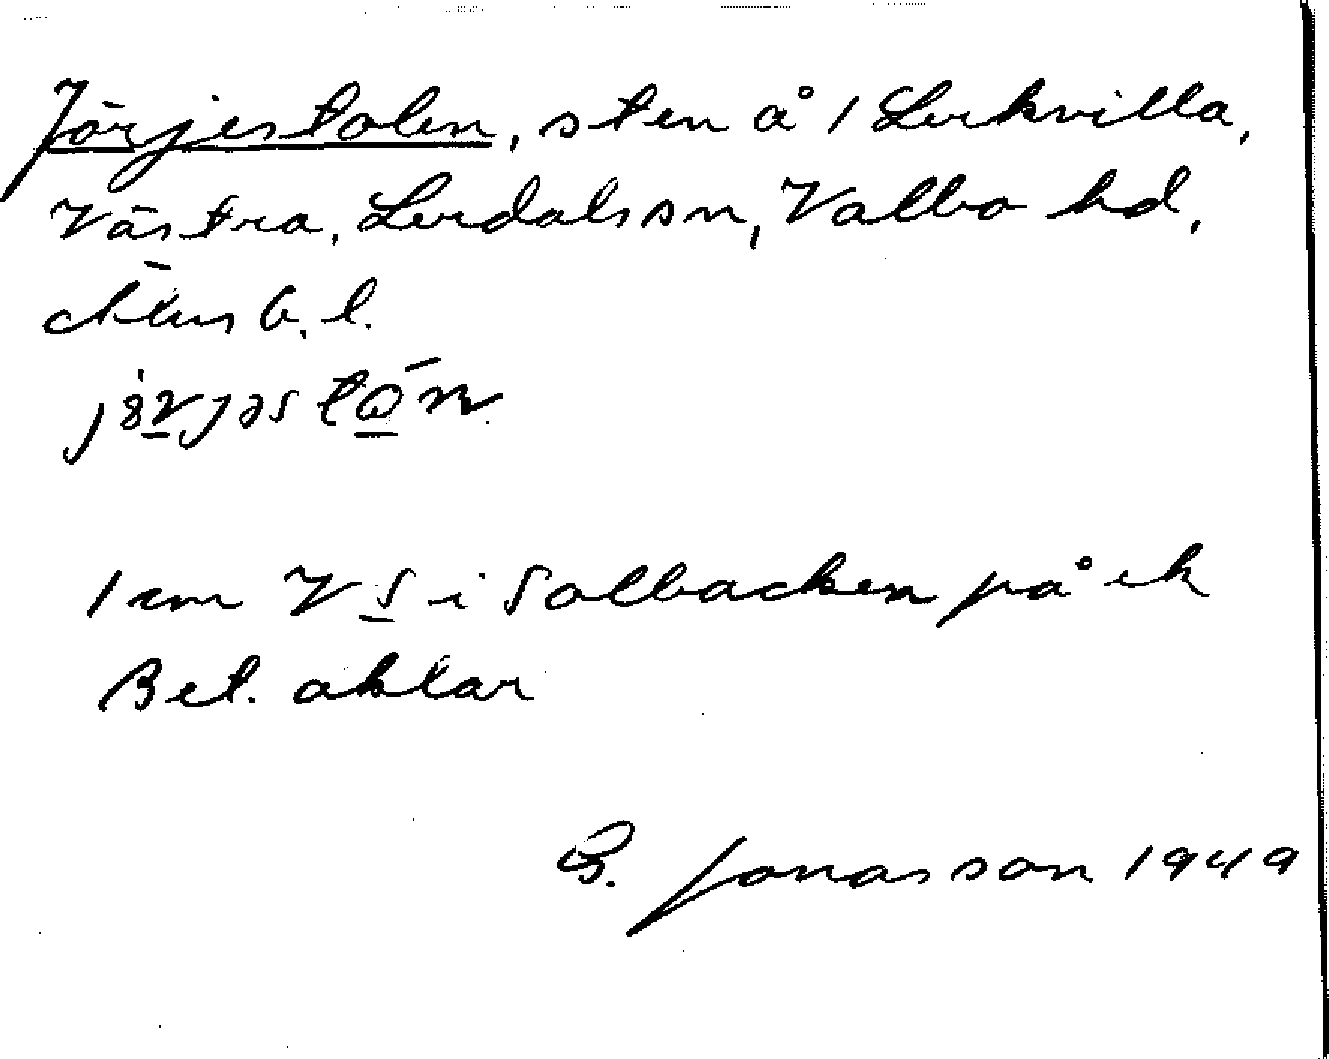 Jörjestolen, sten å 1 Lerkvilla,
Västra, Lerdals sn, Valbo hd,
Älvsb. l.
1 cm V S i Solbacken på ek
Bet. oklar
G. Jonasson 1949